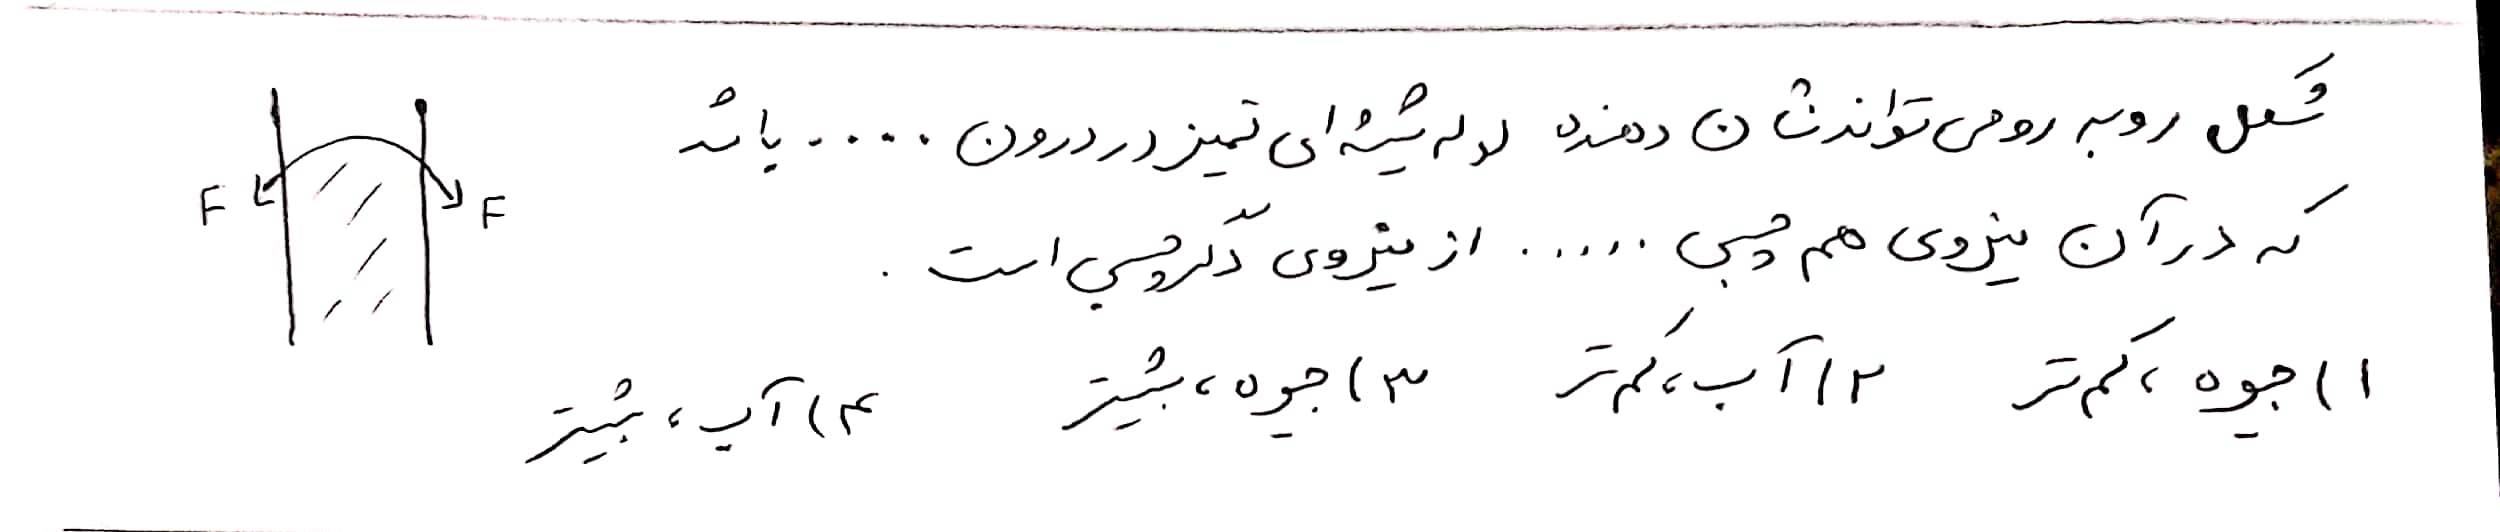 شکل روبه رو می تواند نشان دهنده لوله شیشه ای تمیز در درون ..... باشد
که در آن نیروی هم چسبی ..... از نیروی دگرچسبی است .
۱) جیوه ، کم تر ۲) آب ، کم تر ۳) جیوه ، بیشتر ۴) آب ، بیشتر
F F